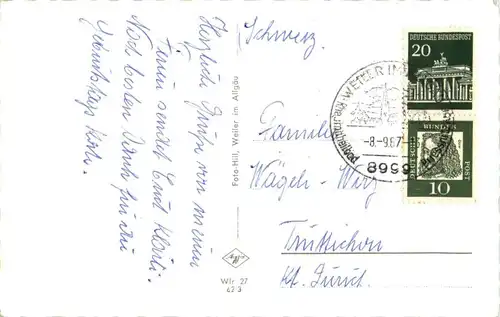 Herzliche Grüsse von meinen
Ferien sendet Euch Klärli.
Noch besten Dank für die
Geburtstags
Foto-Hill, Weiler im Allgäu
Wlr 27
62 3
Schweiz.
Familie
Wägeli-Wirz
Truttikon
Kt. Zürich.
WEILER IM
-8.-9.67-
8999
20
DEUTSCHE BUNDESPOST
DEUTSCHE
BUNDES
POST
10